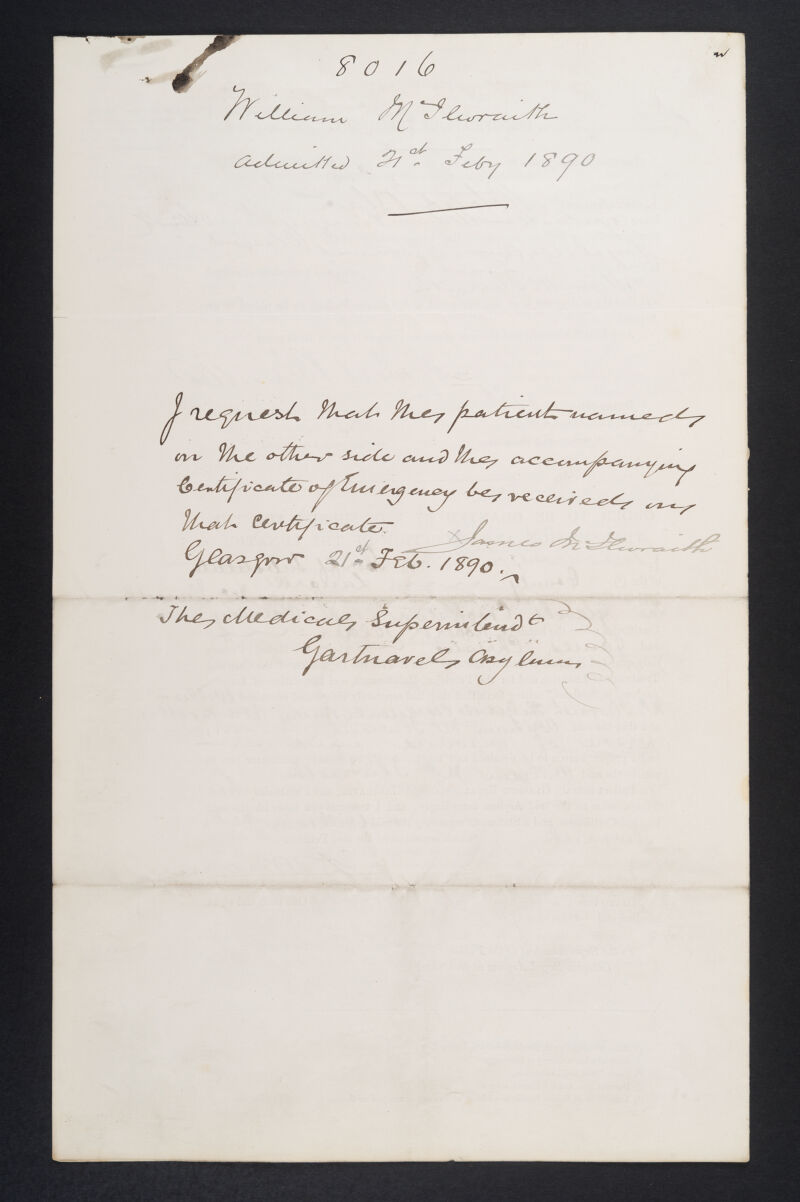 8016
William McIlwraith
Admitted 21st Feby 1890
I request that the patient named
on the other side and the accompanying
Certificate of Emergency be received on
that certificate.
x James McIlwraith
Glasgow 21st Feb. 1890.
The Medical Superintendt
Gartnavel Asylum